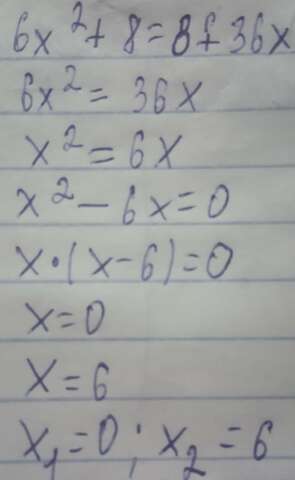 6x² + 8 = 8 + 36x
6x² = 36x
x² = 6x
x² - 6x = 0
x • (x - 6) = 0
x = 0
x = 6
x₁ = 0 ; x₂ = 6